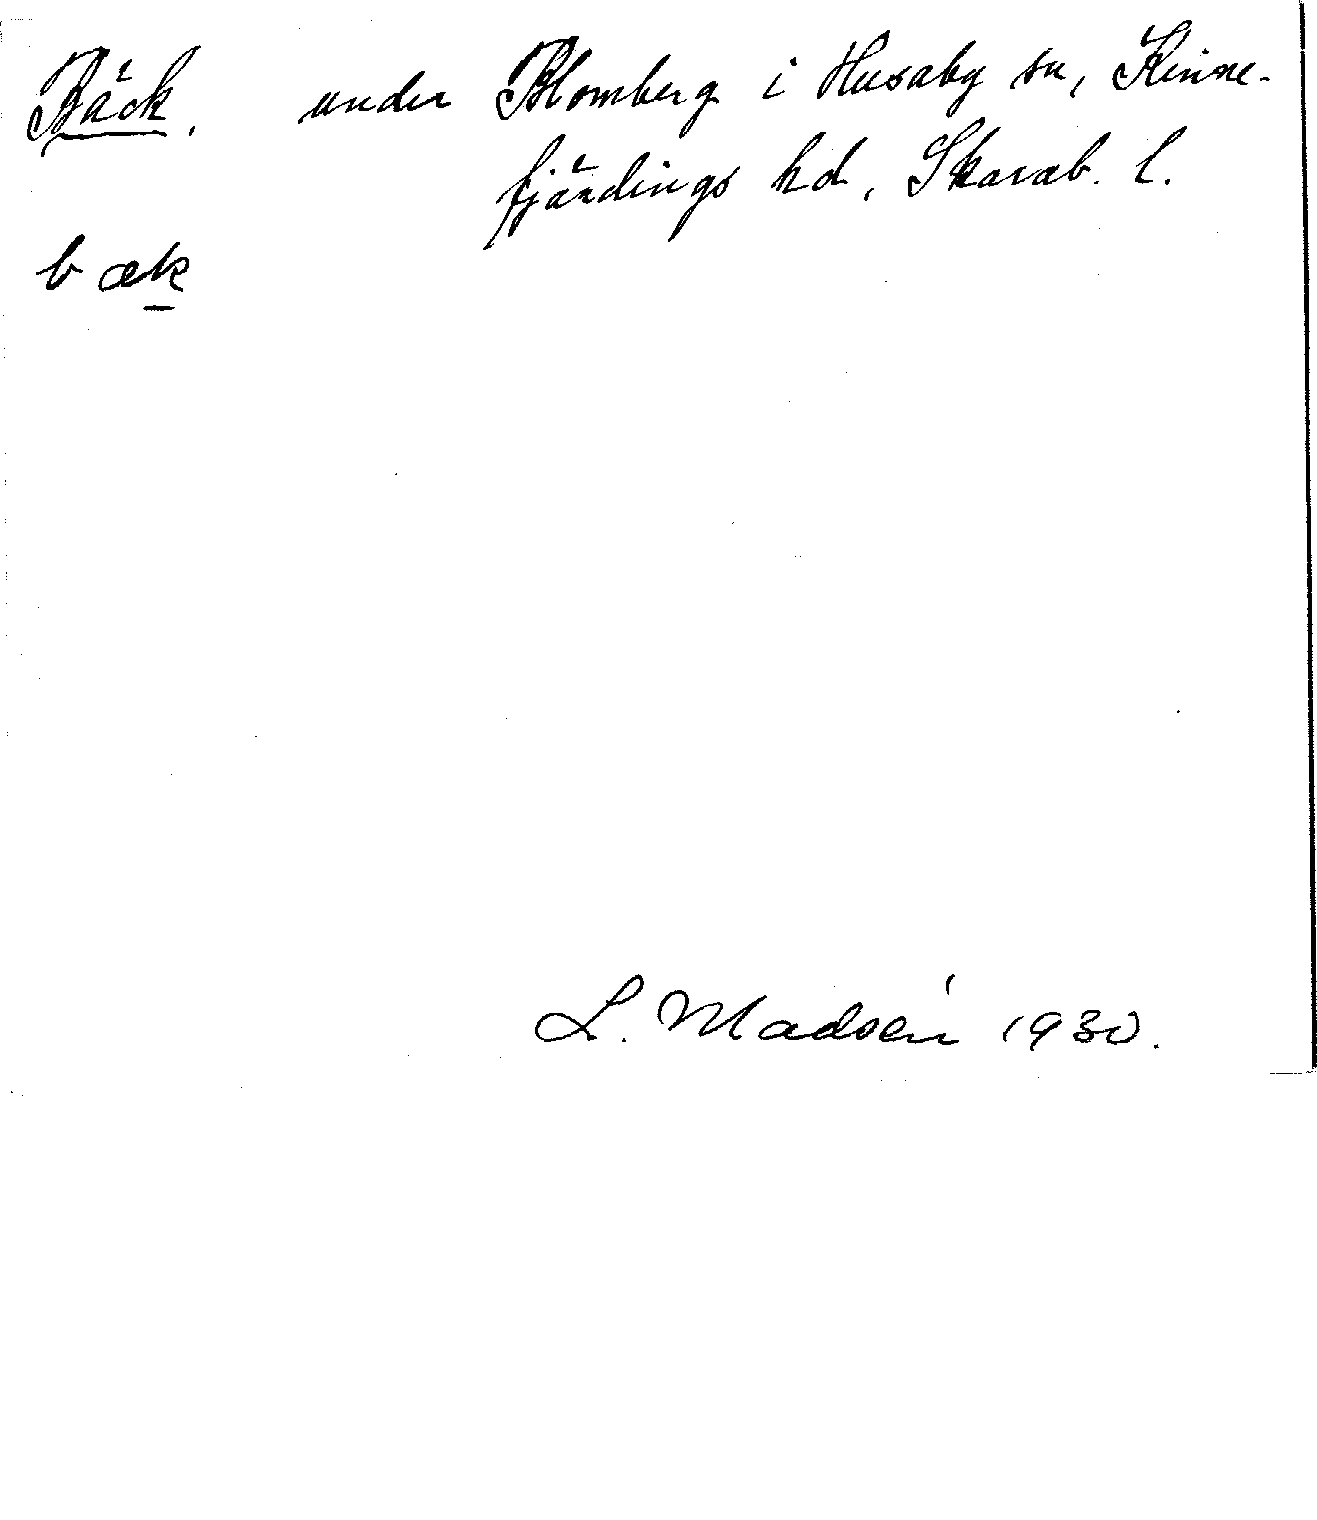 Bäck. under Blomberg i Husaby sn, Kinne-
fjärdings hd, Skarab. l.
bæk
L. Madsén 1930.